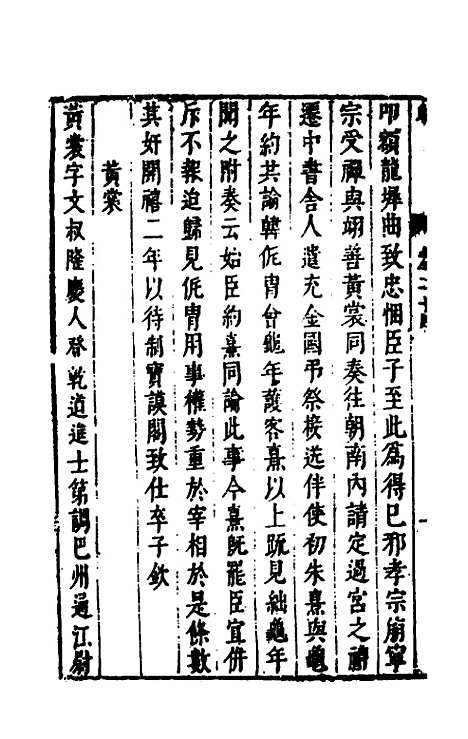 叩額龍墀曲致忠悃臣子至此為得已邪孝宗崩寧
宗受禪與翊善黃裳同奏往朝南內請定過宮之禮
遷中書舍人遣充金國弔祭接送伴使初朱熹與龜
年約共論韓侂胄會龜年護客熹以上䟽見絀龜年
聞之附奏云始臣約熹同論此事今熹旣罷臣宜併
斥不報迫歸見侂胄用事權勢重於宰相於是條數
其奸開禧二年以待制寶謨閣致仕卒子欽
黃裳
黃裳字文叔隆慶人登乾道進士第調巴州通江尉